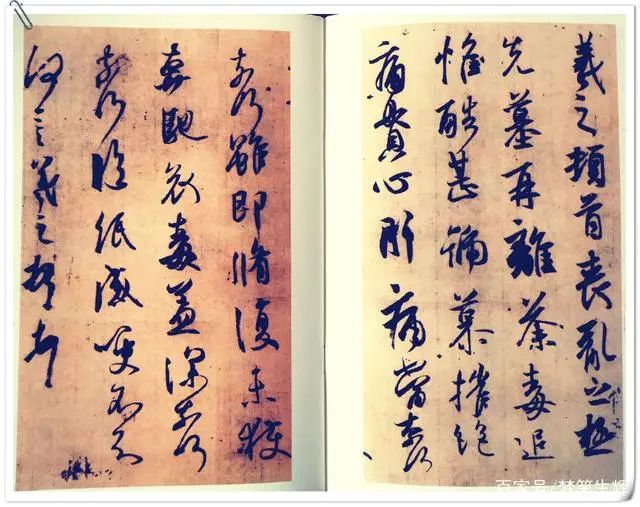 羲之頓首喪亂之極
先墓再離荼毒追
惟酷甚號慕摧絕
痛貫心肝痛當柰何
柰何雖即脩復未獲
奔馳哀毒益深柰何
柰何臨紙感哽不知
何言羲之頓首頓首
百家号/梦笔生辉